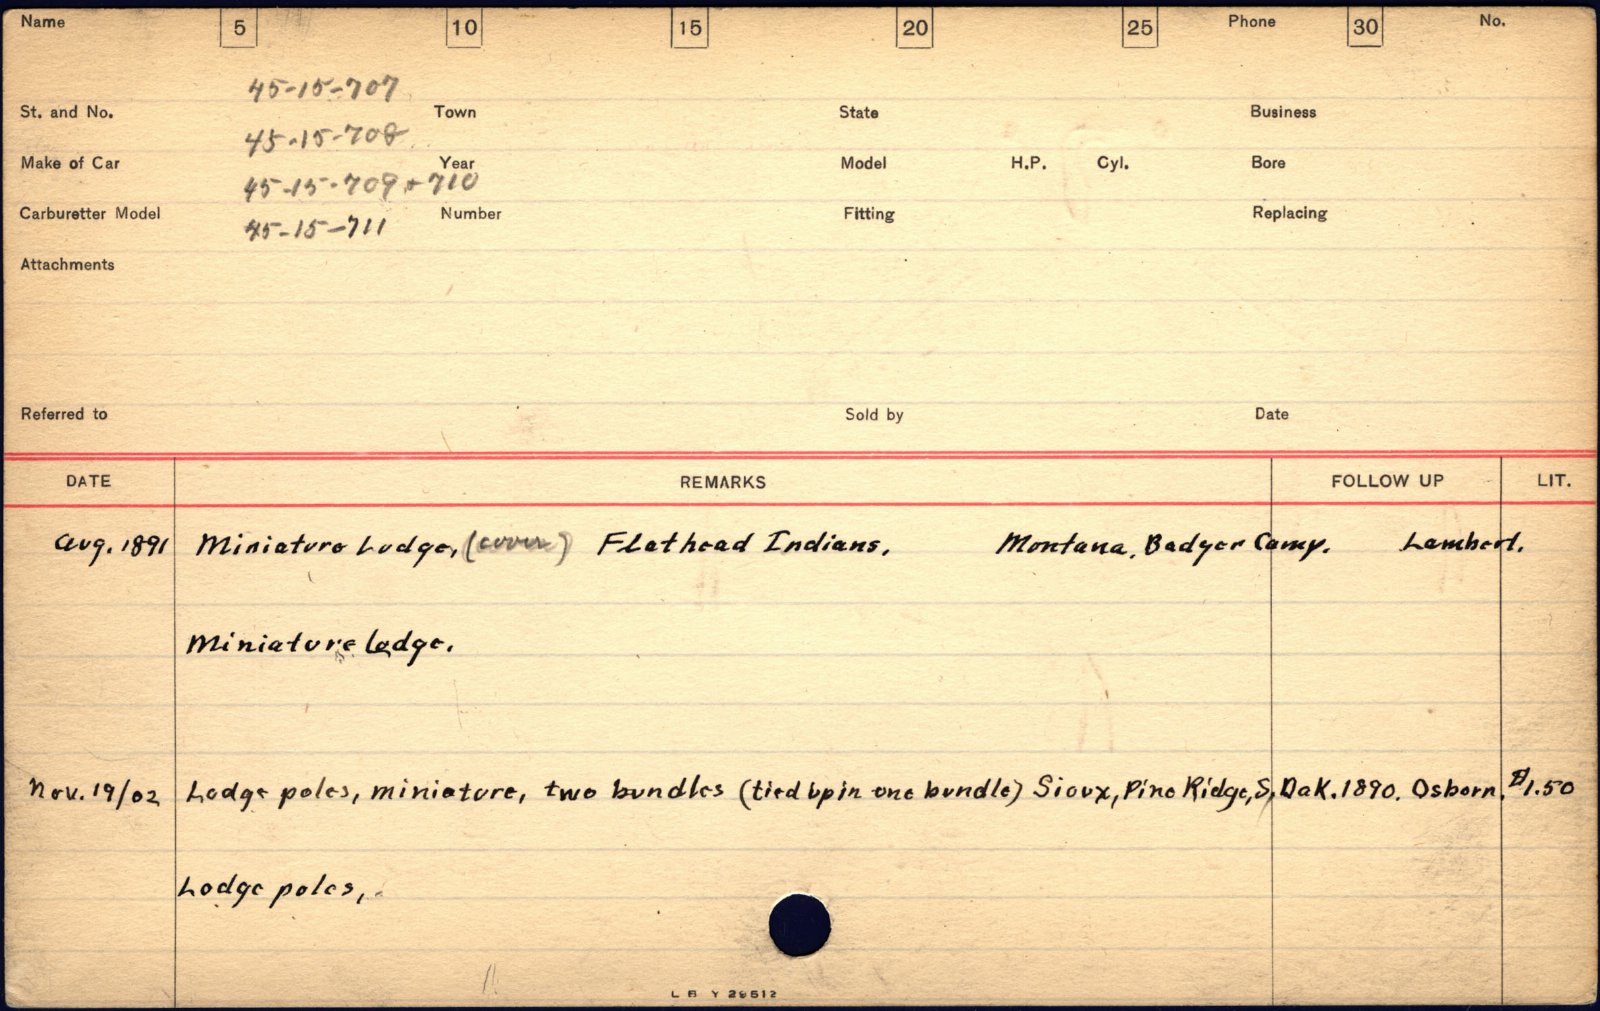 Name 5 10 15 20 25 Phone 30 No.
45-15-707
St. and No. Town State Business
45-15-708
Make of Car Year Model H.P. Cyl. Bore
45-15-709 + 710
Carburetter Model Number Fitting Replacing
45-15-711
Attachments
Referred to Sold by Date
DATE REMARKS FOLLOW UP LIT.
Aug. 1891 Miniature Lodge, (cover) Flathead Indians, Montana, Badger Camp. Lambert.
Miniature lodge.
Nov. 19/02 Lodge poles, miniature, two bundles (tied up in one bundle) Sioux, Pine Ridge, S. Dak. 1890. Osborn. $1.50
Lodge poles,
L B Y 29512